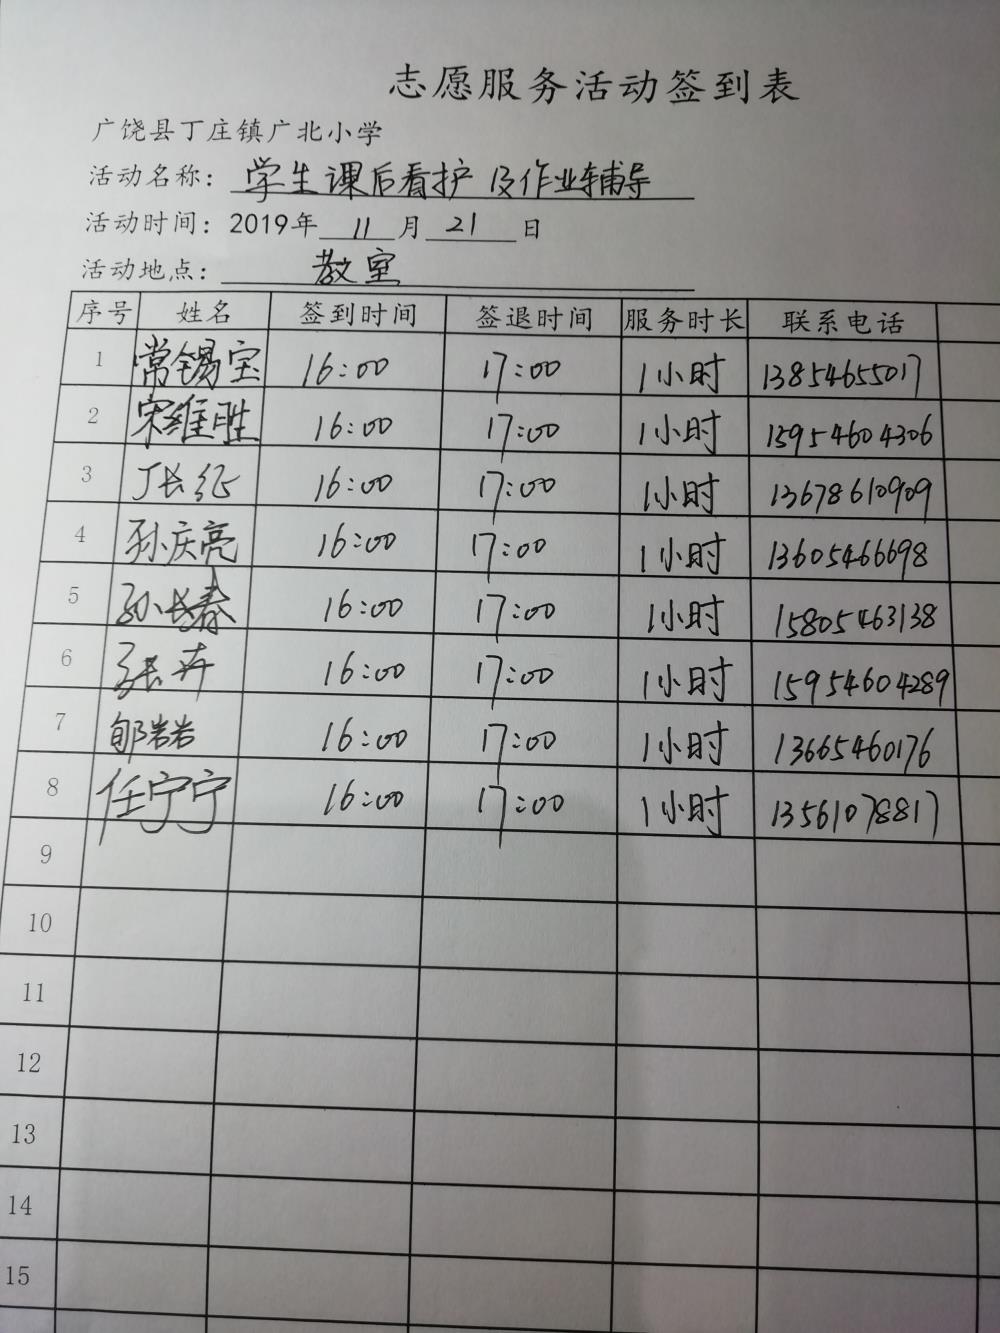 志愿服务活动签到表
广饶县丁庄镇广北小学
活动名称：学生课后看护及作业辅导
活动时间：2019年 11 月 21 日
活动地点：教室
序号 姓名 签到时间 签退时间 服务时长 联系电话
1 常锡宝 16:00 17:00 1小时 13854655017
2 宋维胜 16:00 17:00 1小时 15954604306
3 丁长征 16:00 17:00 1小时 13678610909
4 孙庆亮 16:00 17:00 1小时 13605466698
5 孙长春 16:00 17:00 1小时 15805463138
6 张卉 16:00 17:00 1小时 15954604289
7 郇岩岩 16:00 17:00 1小时 13665460176
8 任宁宁 16:00 17:00 1小时 13561078817
9
10
11
12
13
14
15